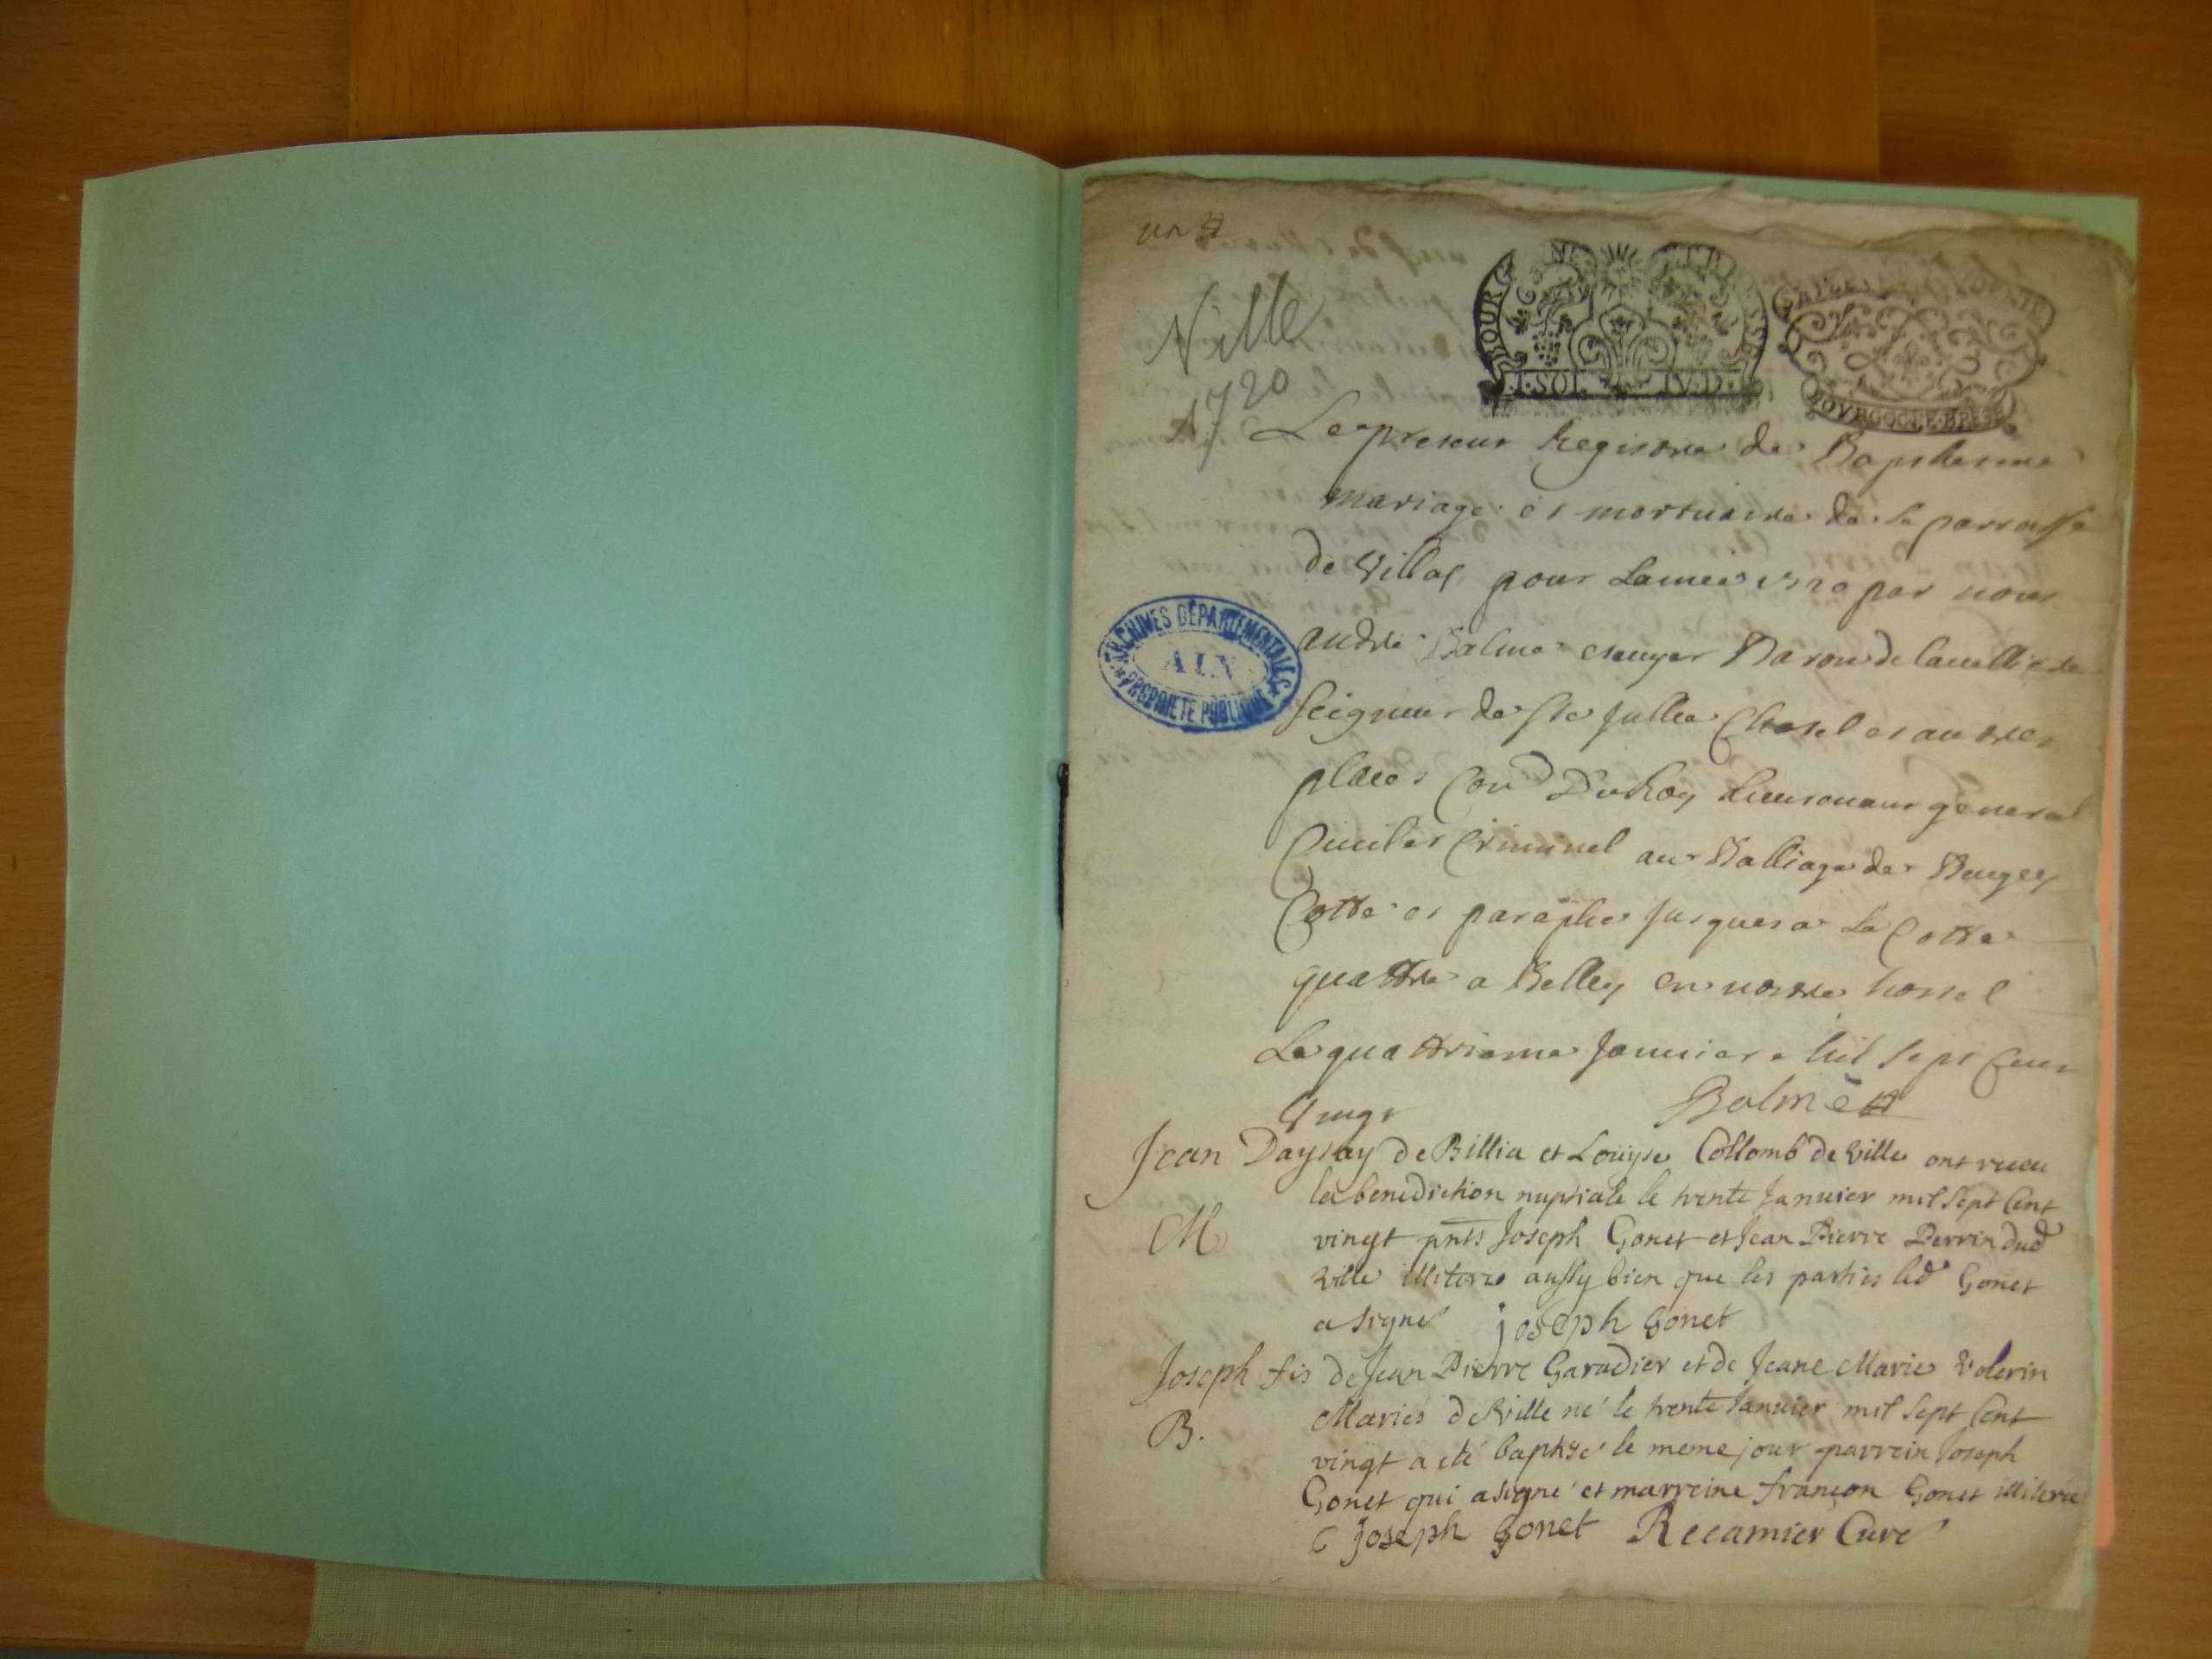 un
Ville
1720
BOURG NE ET BRESSE
I. SOL. IV. D.
BOVRGOGNE. BRESSE
Le present Registre de Baptesme
mariage et mortuaire de la parroisse
de Villes pour Lannee 1720 par nous
andré Balme escuyer Baron de
seigneur de Ste Jullie Chatel et autres
places Con.er Du Roy Lieutenant general
Civil et Criminel au Balliage de Bugey
Cotté et paraphé Jusques a La Cotte
quattre a Belley en nostre hostel
Le quattrieme Januier Mil sept Cent
Vingt Balme
ARCHIVES DÉPARTEMENTALES
AIN
PROPRIÉTÉ PUBLIQUE
Jean Daysay de Billia et Loüyse Collomb de ville ont receu
la benediction nuptiale le trente Januier mil sept Cent
M vingt pnts Joseph Gonet et Jean Pierre Perrin dud
ville illiteré aussy bien que les parties led Gonet
a signé joseph gonet
Joseph fis de Jean Pierre Garadier et de Jeane Marie Volerin
Mariés de ville né le trente Januier mil sept Cent
B. vingt a eté baptisé le meme jour parrein Joseph
Gonet qui a signé et marreine françon Gonet illiterée
joseph gonet Recamier Curé